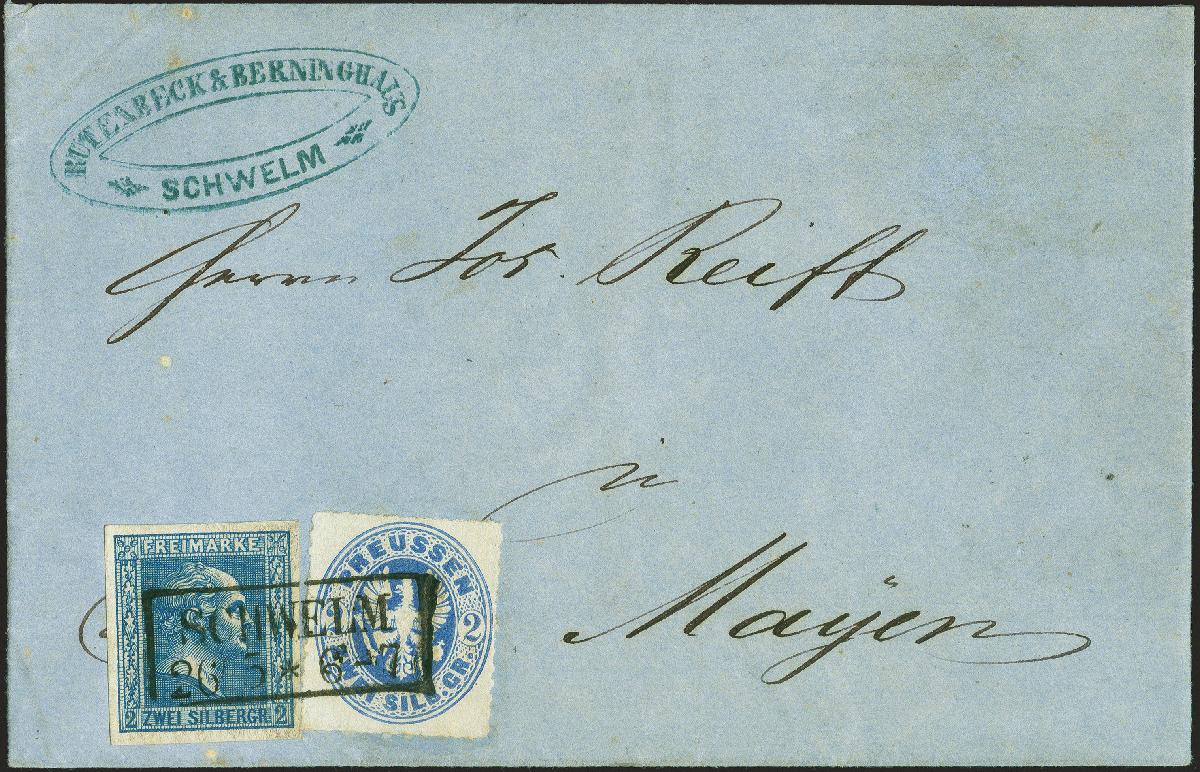 RUTENBECK & BERNINGHAUS
SCHWELM
Herrn Jos. Reiff
in
Mayen
FREIMARKE
2 ZWEI SILBERGR. 2
PREUSSEN
2 2
ZWEI SILB.GR.
SCHWELM
26 5 * 6-7